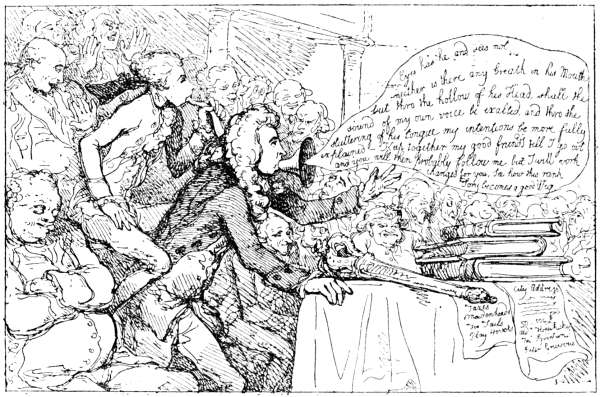 Eyes has he and sees not
neither is there any breath in his Mouth
but thro the hollow of his Head shall the
sound of my own voice be exalted, and thro the
stuttering of his tongue my intentions be more fully
explained Keep together my good friends till I go out
and you will then probably follow me but I will work
changes for you, In how this rank
Tory becomes a good Whig
City Address
Taxes
Maidenheads